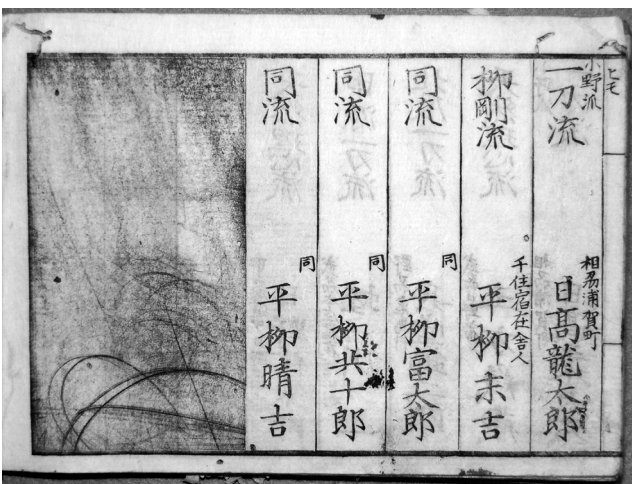 ヒモ
小野派
一刀流
相刕浦賀町
日髙龍太郎
柳剛流
千住宿在舎人
平柳末吉
同流
同
平柳富太郎
同流
同
平柳共十郎
同流
同
平柳晴吉